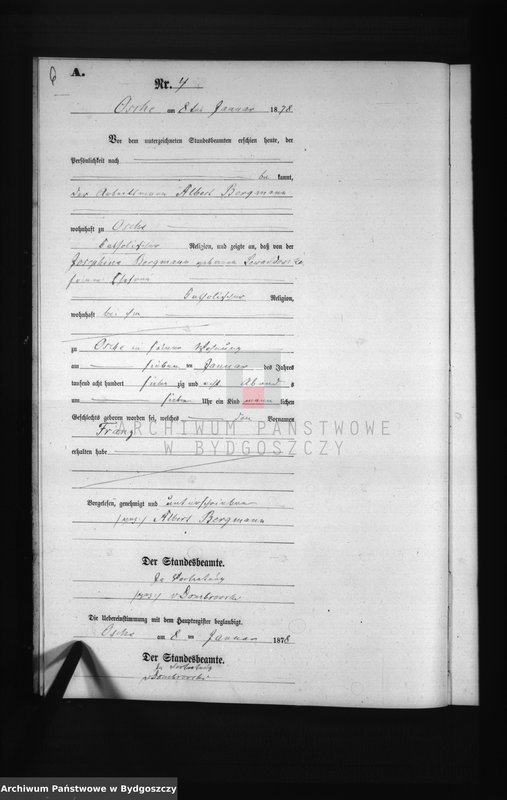 6
A.
Nr. 4
Osche am 8ten Januar 1878
Vor dem unterzeichneten Standesbeamten erschien heute, der
Persönlichkeit nach
be kannt,
der Arbeitsmann Albert Bergmann
wohnhaft zu Osche
katholischer Religion, und zeigte an, daß von der
Josephina Bergmann geborene Lewandowska
seiner Ehefrau
katholischer Religion,
wohnhaft bei ihm
zu Osche in seiner Wohnung
am sieben ten Januar des Jahres
tausend acht hundert sieben zig und acht Abends
um sieben Uhr ein Kind männ lichen
Geschlechts geboren worden sei, welches den Vornamen
Franz
erhalten habe
Vorgelesen, genehmigt und unterschrieben
(gez.) Albert Bergmann
Der Standesbeamte.
In Vertretung
(gez.) v Dombrowski
Die Uebereinstimmung mit dem Hauptregister beglaubigt.
Osche am 8 ten Januar 1878
Der Standesbeamte.
In Vertretung
v Dombrowski
ARCHIWUM PAŃSTWOWE
W BYDGOSZCZY
Archiwum Państwowe w Bydgoszczy